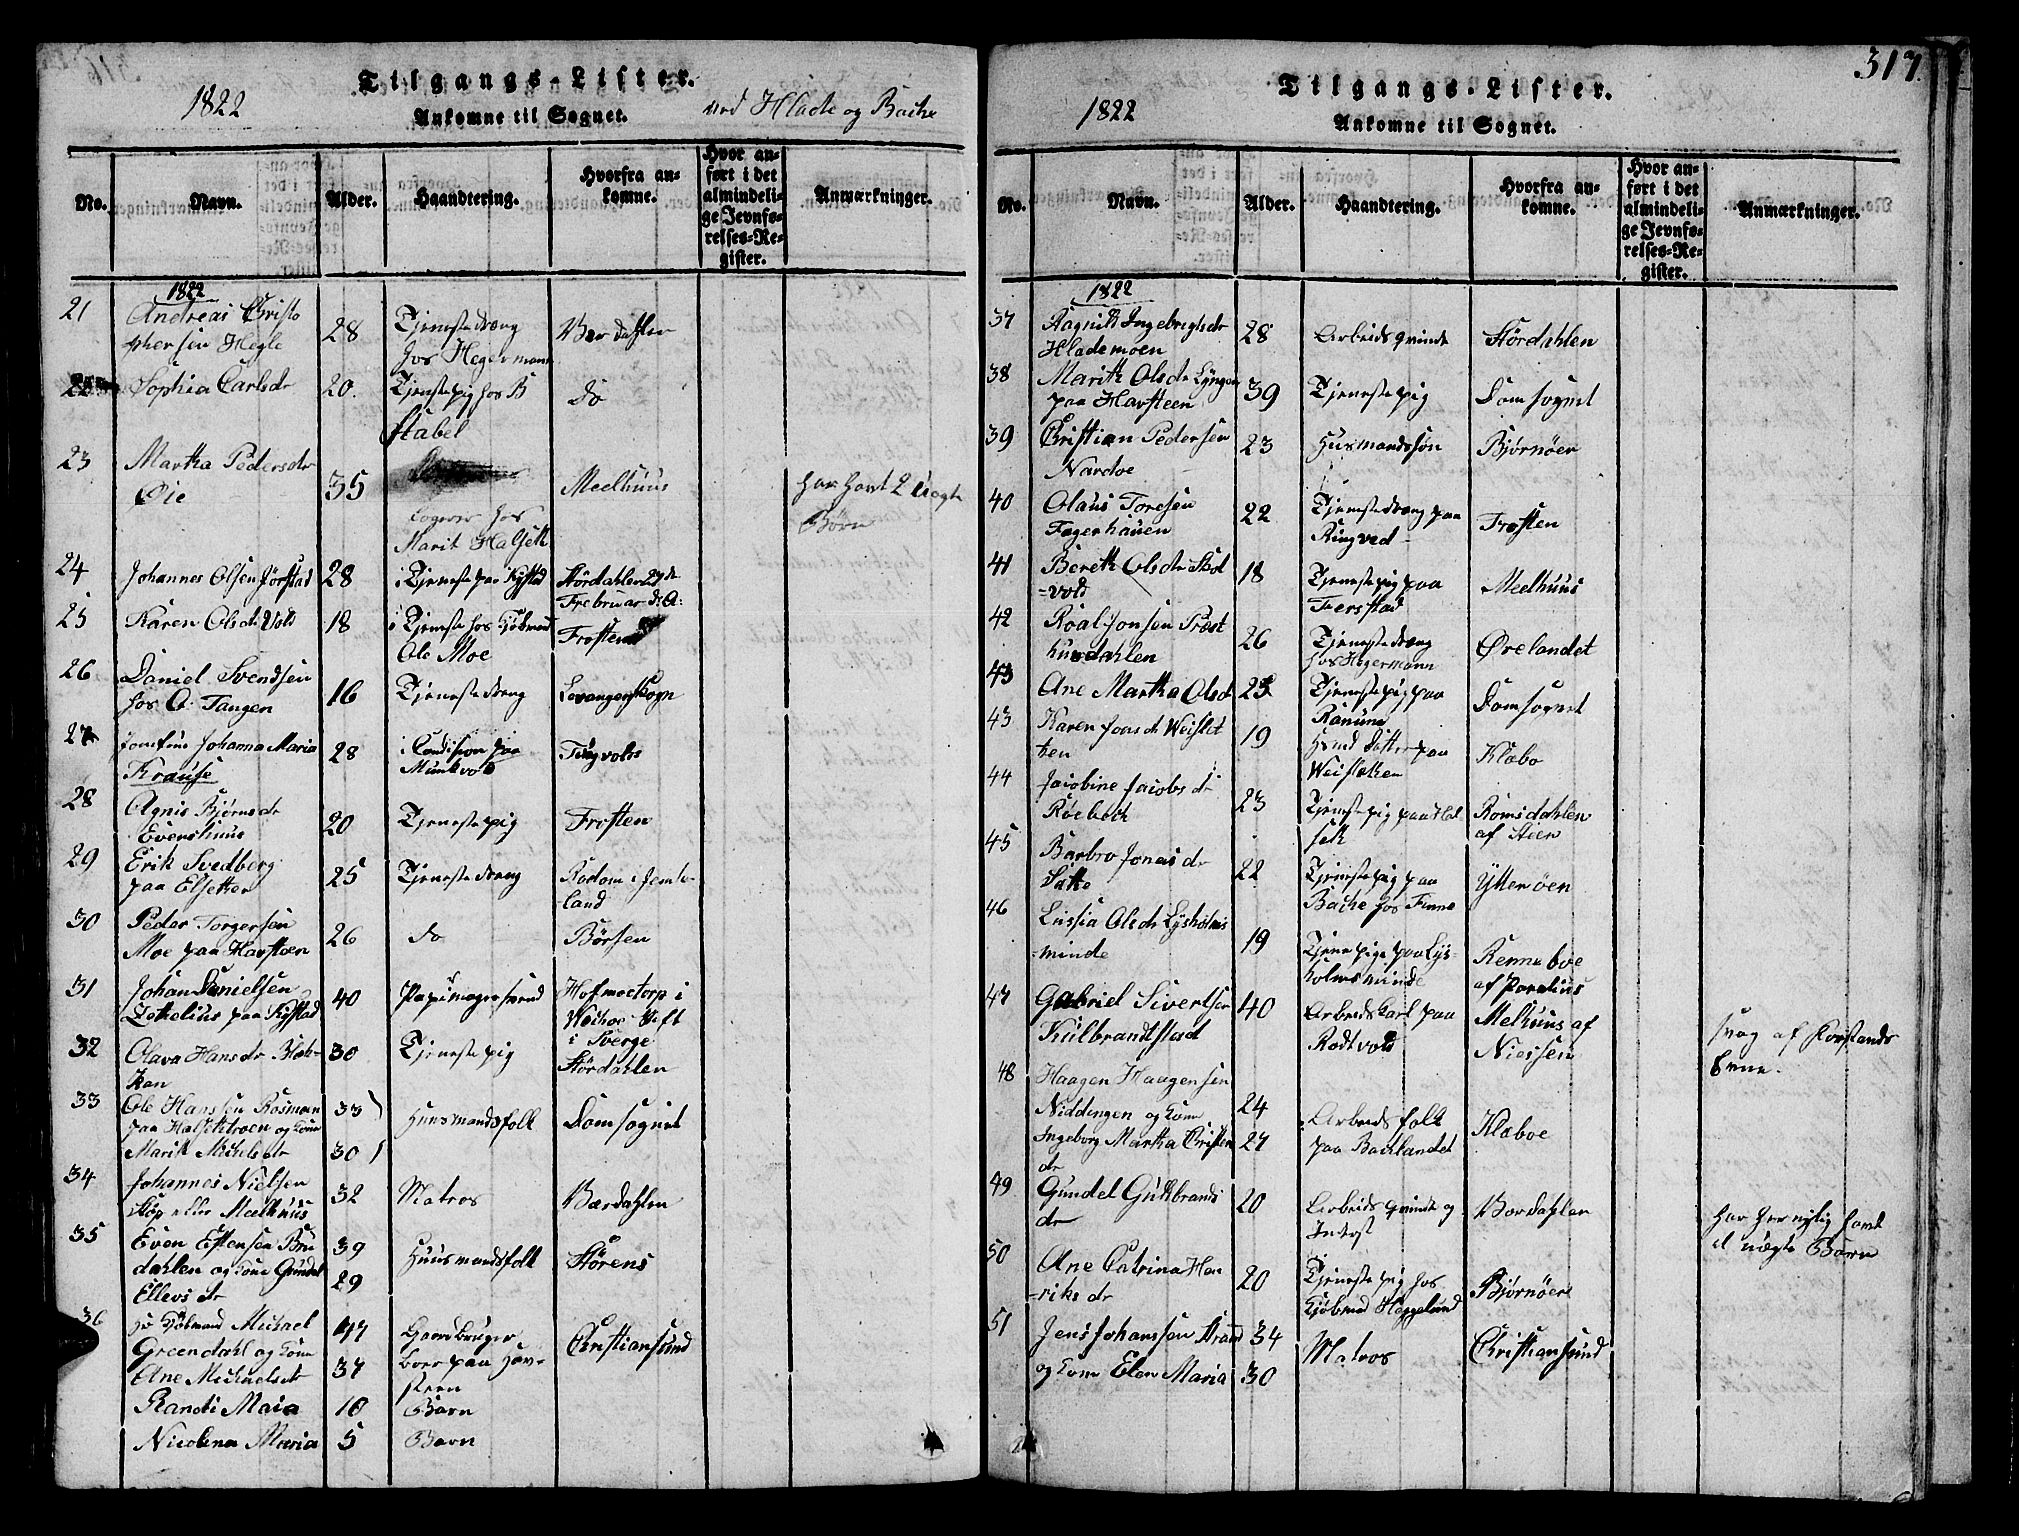 Tilgangs-Lister.
1822
Ankomne til Sognet.
ved Hlade og Bache
No.
Navn.
Alder.
Haandtering.
Hvorfra an-
komne.
Hvor an-
ført i det
almindeli-
ge Jevnfø-
relses-Re-
gister.
Anmærkninger.
1822
21 Andreas Christo
phersen Hegle
28
Tjenestedreng
hos Hegermann
Værdahlen
22 Sophia Carlsdr
20.
Tjenstepig hos B
Stabel
do
23 Martha Pedersdr
Øie
35
Logerer hos
Marit Halseth
Meelhuus
har havt 2 uægte
Børn
24 Johannes Olsen Jørstad
28
i Tjeneste paa Kystad
Størdahlen 27de
Frebruar d: A:
25 Karen Olsdr Vold
18
i Tjeneste hos Kjøbmand
Ole Moe
Frosten
26 Daniel Svendsen
hos A. Tangen
16
Tjenestedreng
Levanger Sogn
27 Josefine Johanna Maria
Krause
28
i Condision paa
Munkvold
Tingvold
28 Agnis Bjørnsdr
Evenshuus
20
Tjenestepig
Frosten
29 Erik Svedberg
paa Elsetker
25
Tjenestedreng
Rødøn i Jemte-
land
30 Peder Torgersen
Moe paa Havsteen
26
do
Børsen
31 Johan Danielsen
Zethelius paa Kystad
40
Papiirmagersvend
Hofmoetorp i
Wechsoe Stift
i Sverge
32 Olava Hansdr Blæk-
kan
30
Tjenestepig
Størdahlen
33 Ole Hanssen Rosmoen
paa Halsethtroen og Kone
Marit Michelsdr
33
30
Huusmandsfolk
Domsognet
34 Johannes Nielsen
Støp eller Meelhuus
32
Matros
Værdahlen
35 Even Estensen Bru
dahlen og Kone Gundel
Ellevsdr
39
29
Huusmandsfolk
Størens
36 Hr Kjøbmand Michael
Greendahl og Kone
Ane Michaelsdr
Randi Maia
Nicolina Maria
47
37
10
5
Gaardbruger
boer paa Hav-
steen
Barn
Barn
Christiansund
317
Tilgangs-Lister.
1822
Ankomne til Sognet.
No.
Navn.
Alder.
Haandtering.
Hvorfra an-
komne.
Hvor an-
ført i det
almindeli-
ge Jevnfø-
relses-Re-
gister.
Anmærkninger.
1822
37 Ragnild Ingebrigtsdr
Hlademoen
28
Arbeidsqvinde
Størdahlen
38 Marith Olsdr Lyngen
paa Havsteen
39
Tjenestepig
Domsognet
39 Christian Pedersen
Nardoe
23
Husmandssøn
Bjørnøer
40 Olaus Toresen
Fagerhauen
22
Tjenestedreng paa
Ringved
Frosten
41 Bereth Olsdr Skol
=vold
18
Tjenestepig paa
Ferstad
Meelhuus
42 Roal Jonsen Præst
huusdahlen
26
Tjenestedreng
hos Hegermann
Ørelandet
43 Ane Martha Olsd
25
Tjenestepig paa
Ranum
Domsognet
43 Karen Joensdr Weislet
ten
19
Huusd Datter paa
Weisletten
Klæbo
44 Jacobine Jacobsdr
Røebech
23
Tjenestepig paa Hal
seth
Romsdahlen
af Stien
45 Barbro Jonasdr
Satte
22
Tjenestepig paa
Bache hos Finne
Ytterøen
46 Lussia Olsdr Lysholms
=minde
19
Tjenestepige paa Lys-
holmsminde
Renneboe
af Porelius
47 Gabriel Sivertsen
Kulbrandtstad
40
Arbeidskarl paa
Rodtvold
Melhuus af
Niessen
svag af Forstands
Evne.
48 Haagen Haagensen
Niddingen og Kone
Ingeborg Martha Christen
dr
24
27
Arbeidsfolk
paa Bachlandet
Klæboe
49 Gundel Guthbrands
dr
20
Arbeidsqvinde og
Inderst
Værdahlen
har her nylig havt
et uægte Barn
50 Ane Catrina Hen
=riksdr
20
Tjenestepig hos
Kjøbmd Heggelund
Bjørnøer
51 Jens Johanssen Strand
og Kone Elen Maria
34
30
Matros
Christiansund